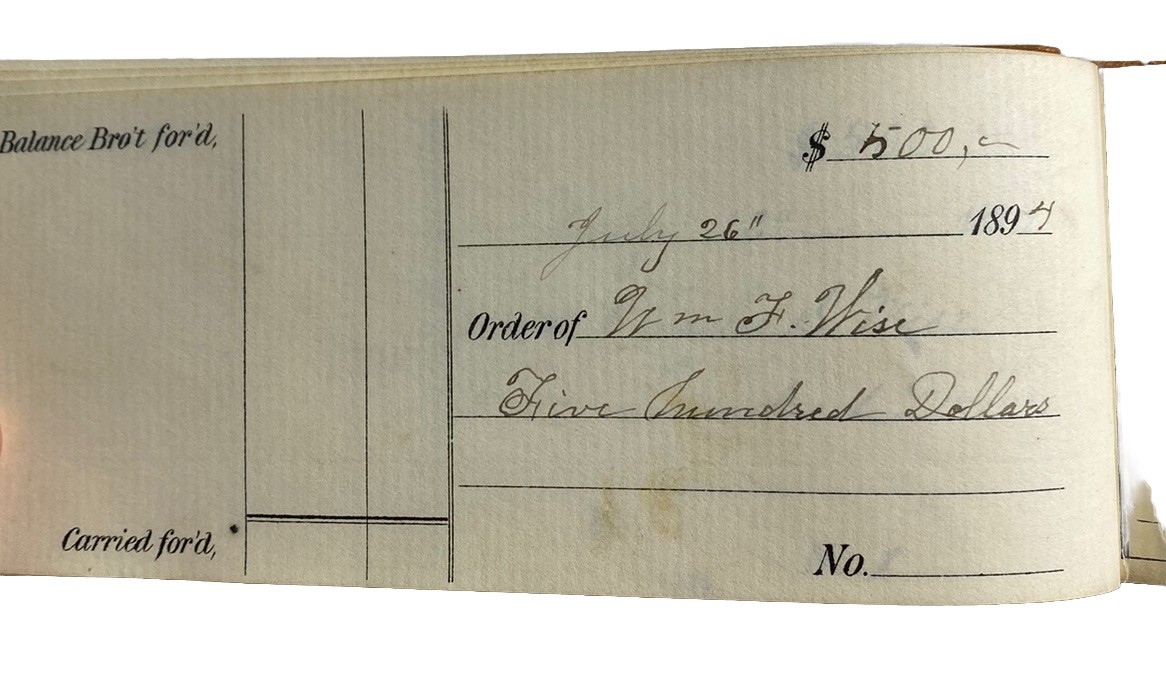 Balance Bro't for'd,
$ 500,—
July 26" 1894
Order of Wm F. Wise
Five hundred Dollars
Carried for'd,
No.